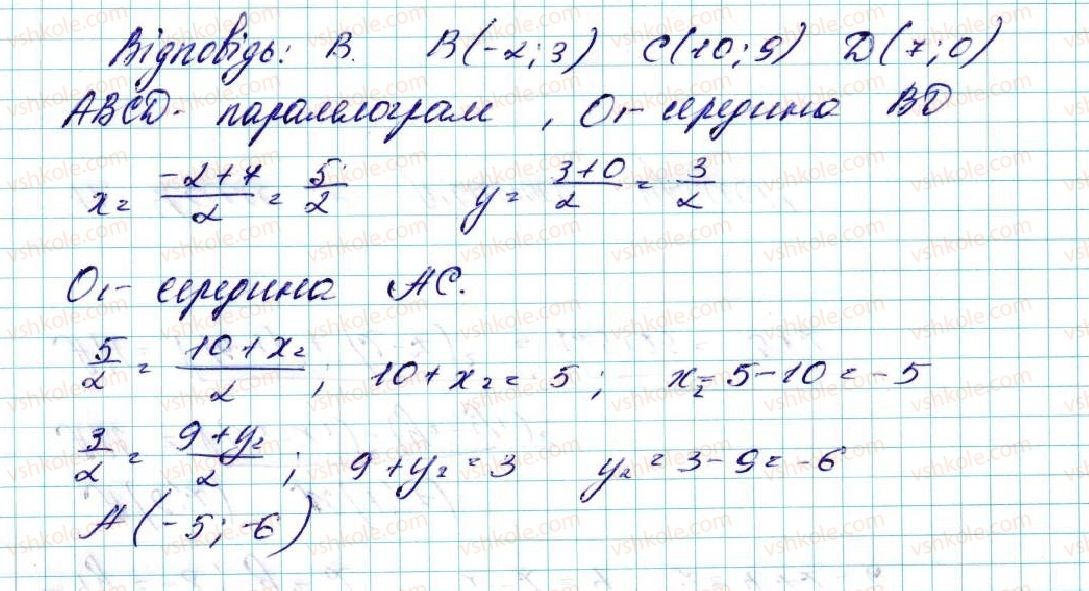 Відповідь: В. B(-2; 3) C(10; 9) D(7; 0)
ABCD - паралелограм, O₁ - середина BD
x = \frac{-2+7}{2} = \frac{5}{2} y = \frac{3+0}{2} = \frac{3}{2}
O₁ - середина AC.
\frac{5}{2} = \frac{10+x₂}{2}; 10+x₂ = 5; x₂ = 5-10 = -5
\frac{3}{2} = \frac{9+y₂}{2}; 9+y₂ = 3 y₂ = 3-9 = -6
A(-5; -6)